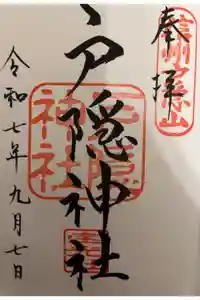 奉拝
信州戸隠山
戸隠神社
戸隠神社
令和七年九月七日